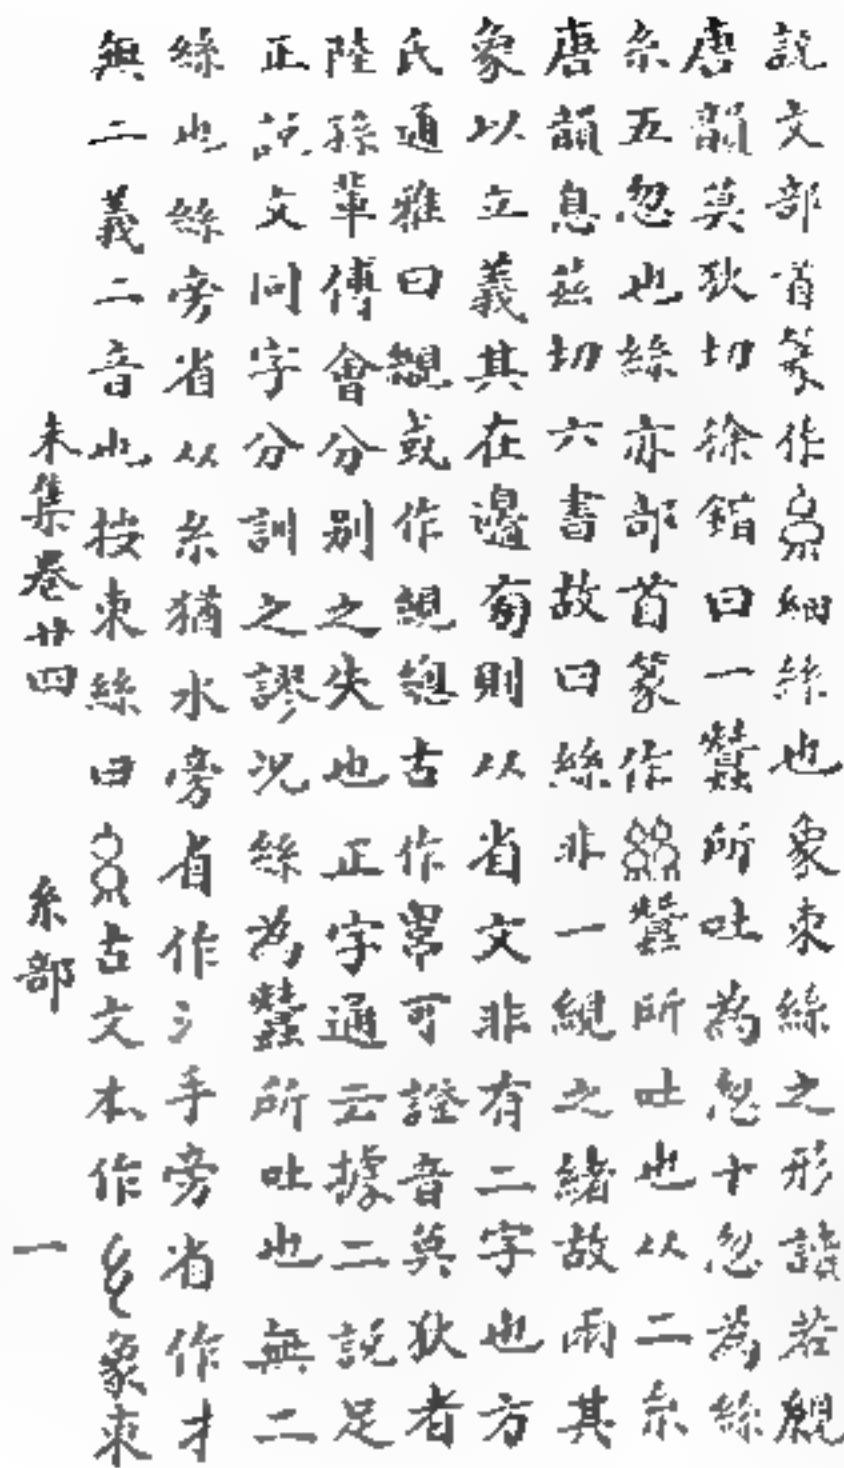 説文部首篆作細絲也象束絲之形讀若覛
唐韻莫狄切徐鍇曰一蠶所吐為忽十忽為絲
糸五忽也絲亦部首篆作蠶所吐也从二糸
唐韻息茲切六書故曰絲非一繅之緒故兩其
象以立義其在邊旁則以省文非有二字也方
氏通雅曰覛或作總古作可證音莫狄者
陸孫輩傅會分別之失也正字通云據二說足
正説文同字分訓之謬况絲為蠶所吐也無二
絲也絲旁省从糸猶水旁省作氵手旁省作才
無二義二音也按束絲曰古文本作象束
未集卷廿四 糸部 一